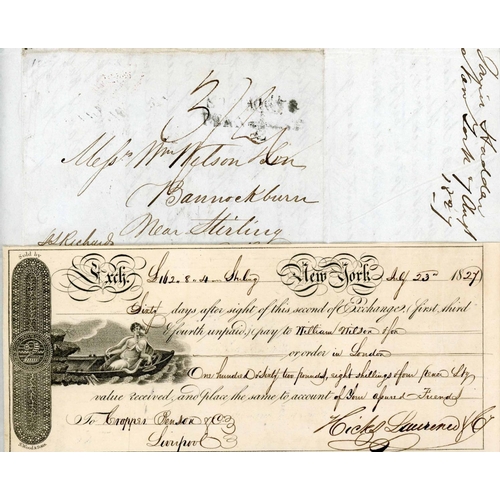 Messrs Wm Wilson & Son
Bannockburn
Near Stirling
New York
1827
Sold by
Exch. £162.8.4 Sterling New York July 23rd 1827
Sixty days after sight of this second of Exchange, (first, third
& fourth unpaid,) pay to William Wilson & Son
or order in London
One hundred & sixty two pounds, eight shillings & four pence Stg
value received, and place the same to account of Your assured Friends
To Cropper Benson & Co
Liverpool